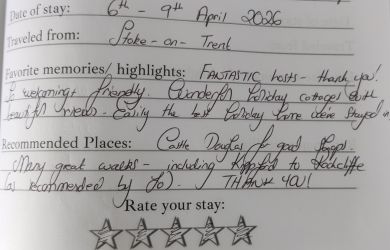 Date of stay: 6th - 9th April 2026
Traveled from: Stoke - on - Trent
Favorite memories/ highlights: FANTASTIC hosts - thank you!
So welcoming + friendly. Wonderful holiday cottages with
beautiful views. Easily the best holiday home we've stayed in.
Recommended Places: Castle Douglas for good shops.
Many great walks - including Kippford to Rockcliffe
(as recommended by Jo). THANK YOU!
Rate your stay: